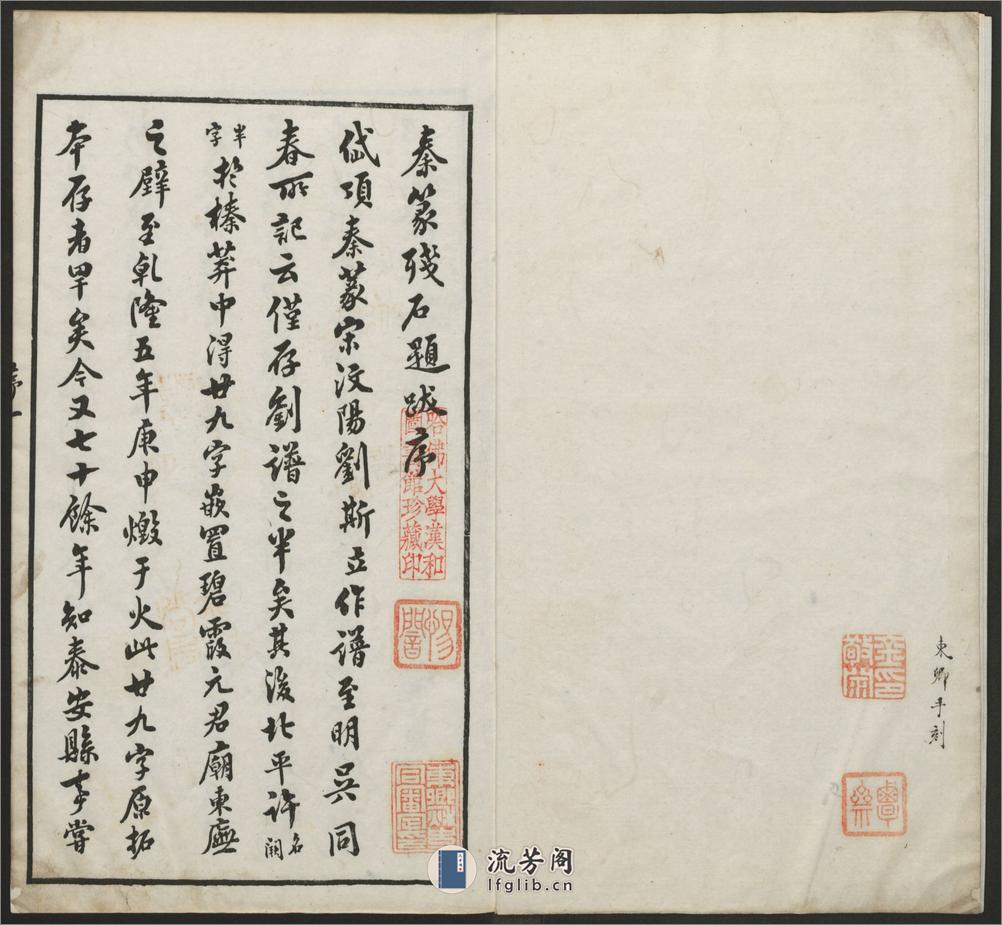 東卿手刻
秦篆殘石題跋序
岱頂秦篆宋汶陽劉斯立作譜至明吳同
春所記云僅存劉譜之半矣其後北平許名闕
半字於榛莽中得廿九字嵌置碧霞元君廟東廡
之壁至乾隆五年庚申燬于火此廿九字原拓
本存者罕矣今又七十餘年知泰安縣事嘗
哈佛大學漢和
圖書館珍藏印
序一
流芳阁
lfglib.cn